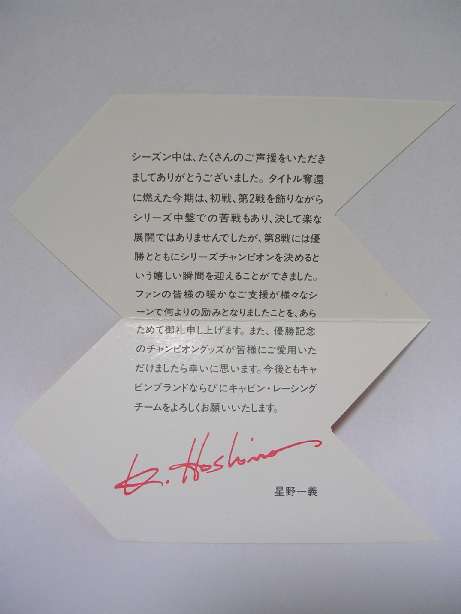 シーズン中は、たくさんのご声援をいただき
ましてありがとうございました。タイトル奪還
に燃えた今期は、初戦、第2戦を飾りながら
シリーズ中盤での苦戦もあり、決して楽な
展開ではありませんでしたが、第8戦には優
勝とともにシリーズチャンピオンを決めると
いう嬉しい瞬間を迎えることができました。
ファンの皆様の暖かなご支援が様々なシ
ーンで何よりの励みとなりましたことを、あら
ためて御礼申し上げます。また、優勝記念
のチャンピオングッズが皆様にご愛用いた
だけましたら幸いに思います。今後ともキャ
ビンブランドならびにキャビン・レーシング
チームをよろしくお願いいたします。
K. Hoshino
星野一義